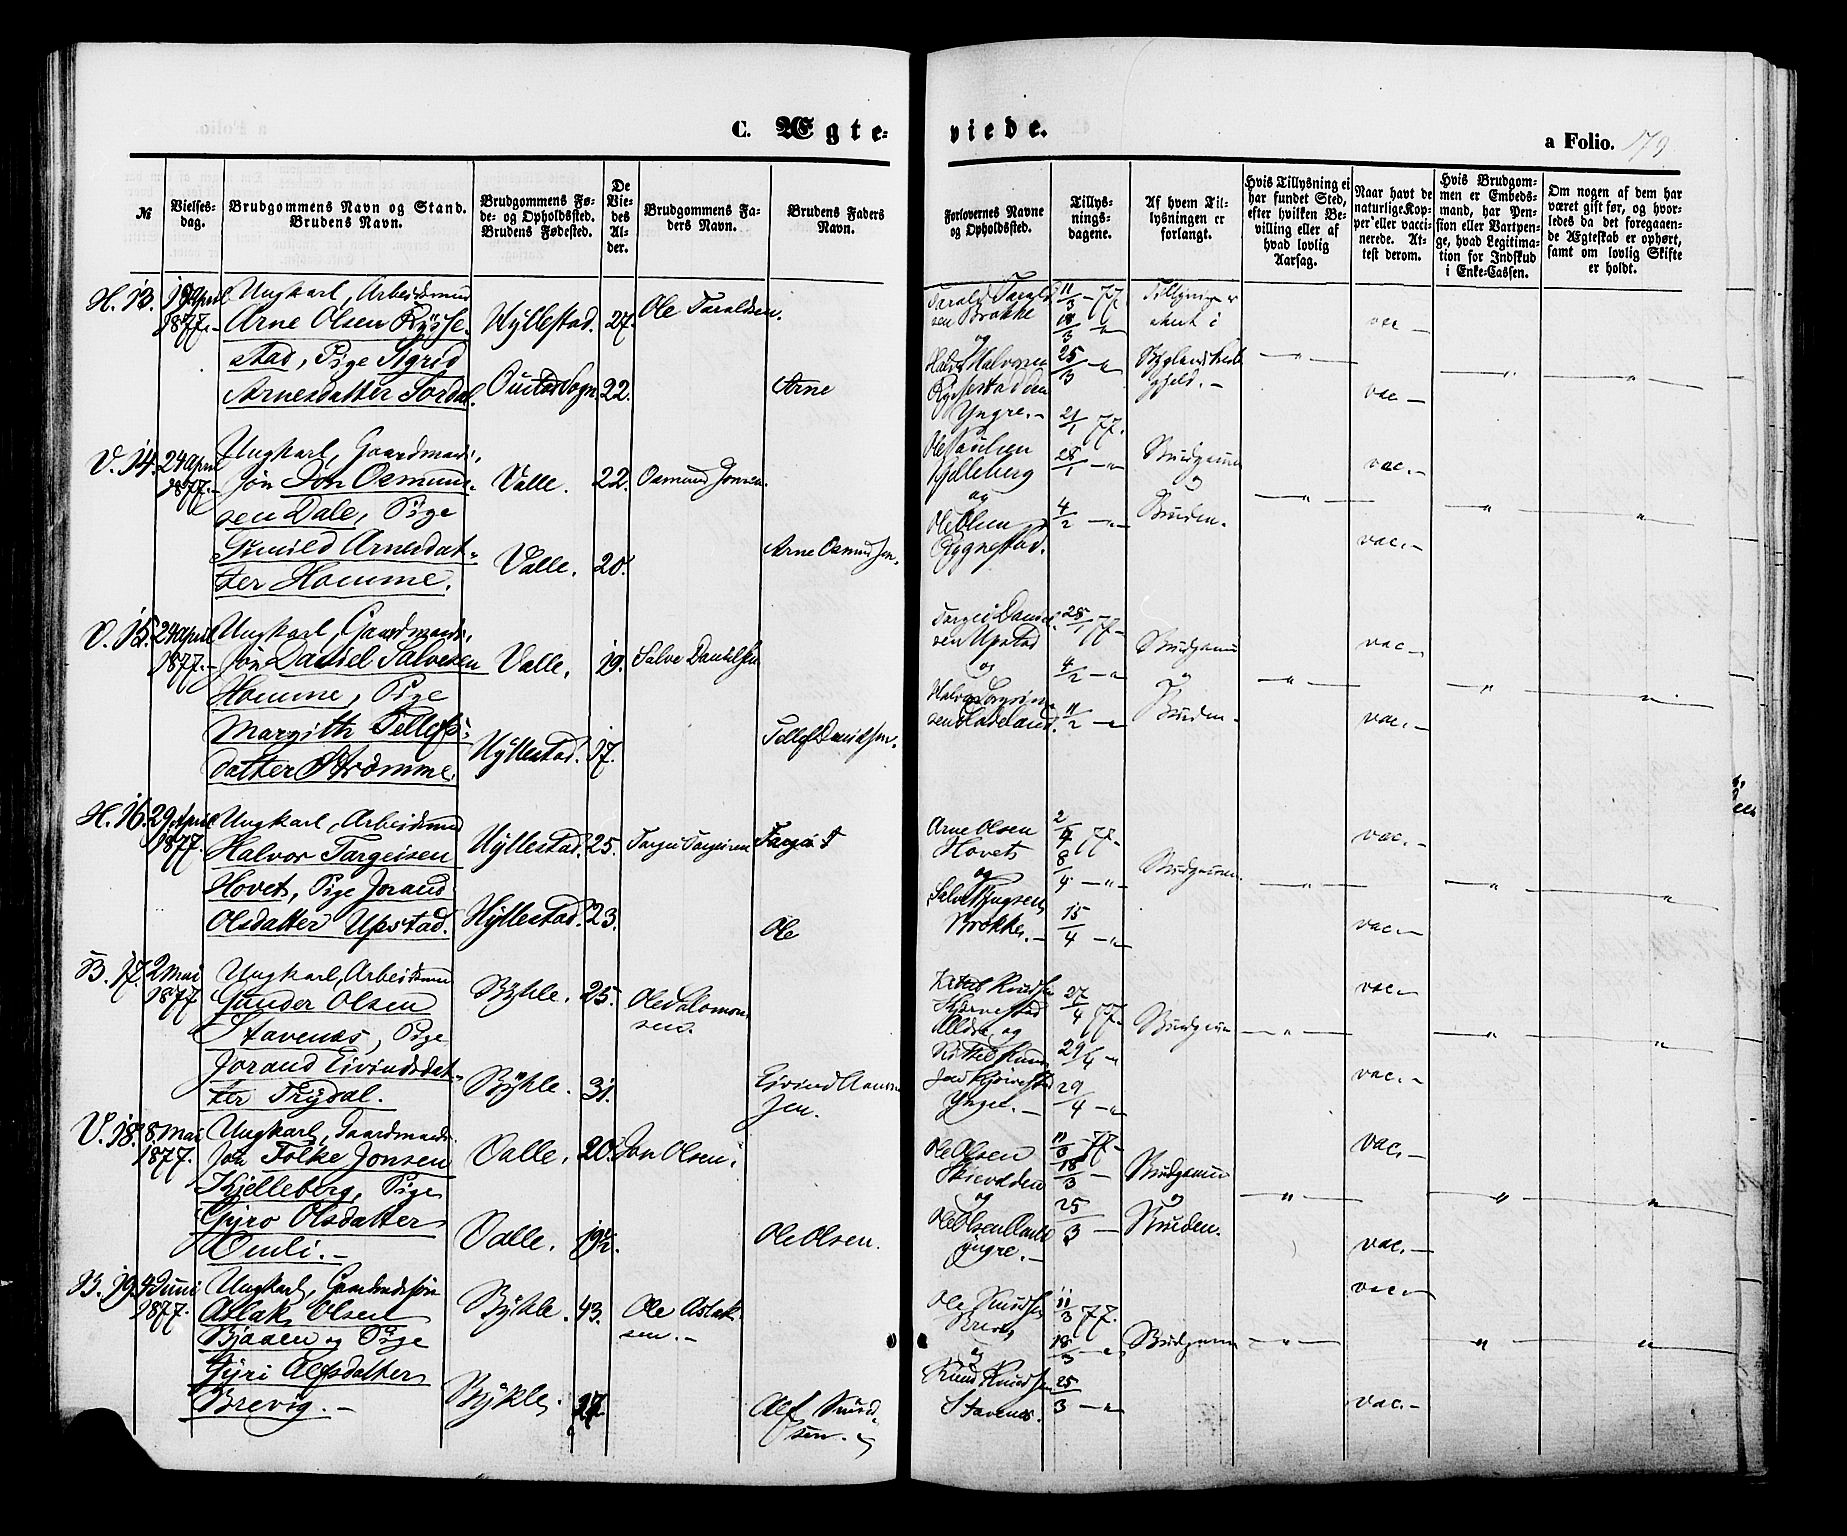 C. Ægte-
viede.
a Folio. 179
№
Vielses-
dag.
Brudgommens Navn og Stand.
Brudens Navn.
Brudgommens Fø-
de- og Opholdssted.
Brudens Fødested.
De
Vie-
des
Al-
der.
Brudgommens Fa-
ders Navn.
Brudens Faders
Navn.
Forlovernes Navne
og Opholdssted.
Tillys-
nings-
dagene.
Af hvem Til-
lysningen er
forlangt.
Hvis Tillysning ei
har fundet Sted,
efter hvilken Be-
villing eller af
hvad lovlig
Aarsag.
Naar havt de
naturlige Kop-
per eller vacci-
nerede. At-
test derom.
Hvis Brudgom-
men er Embeds-
mand, har Pen-
sion eller Vartpen-
ge, hvad Legitima-
tion for Indskud
i Enke-Cassen.
Om nogen af dem har
været gift før, og hvor-
ledes da det foregaaen-
de Ægteskab er ophørt,
samt om lovlig Skifte
er holdt.
H. 13. April 1877.-
Ungkarl, Arbeidsmd
Arne Olsen Rysse-
stad, Pige Sigrid
Arnesdatter Sordal.
Hyllestad. 27. Ole Taraldsen.
Sogn 22. Arne
Tarald Tarald-
sen Brokke
og
Halv. Halvorsen
Rysestad den
Yngre.-
11/3 - 77.
18/3 - "
25/3 - "
i
Byglands
gjeld.-
vac -
vac -
V. 14. 24 April 1877.-
Ungkarl, Gaardmands-
søn Jon Osmund-
sen Dale, Pige
Gunild Arnesdat-
ter Homme.
Valle. 22. Osmund Jonsen.
Valle. 20. Arne Osmundsen.
Ole Paulsen
Kjelleberg
og
Ole Olsen
Rygnestad.
21/1 77.
28/1 - "
4/2 - "
Brudgommen
og
Bruden.
vac.-
vac.-
V. 15. 24 April 1877.-
Ungkarl, Gaardmands-
søn Daniel Salvesen
Homme, Pige
Margith Tellefs-
datter Strømme.
Valle. 19. Salve Danielsen
Hyllestad. 17. Tellef Davidsen.
Targei Daniel-
sen Upstad
og
Halvor Torgrim-
sen Haveland.
28/1 77-
4/2 - "
11/2 - "
Brudgommen
og
Bruden.
vac-
vac.-
H. 16. 29 April 1877.
Ungkarl, Arbeidsmd
Halvor Targeisen
Hovet, Pige Joraand
Olsdatter Upstad.
Hyllestad. 25. Targei Targeisen
Hyllestad. 23. Ole
Arne Olsen
Hovet
og
Salve
Brokke.-
2/4 77-
8/4 - "
15/4 - "
Brudgommen.
vac.-
vac.-
B. 17. 2 Mai 1877
Ungkarl, Arbeidsmd
Gunder Olsen
Stavenes, Pige
Joraand Eivindsdat-
ter Trydal.
Bykle. 25. Ole Salomon-
sen.
Bykle. 31. Eivind
sen.
Kittil Knudsen
Ældre og
Kittil Knud-
Yngre.-
27/4 77-
29/4 - "
29/4 - "
Brudgom
vac.-
vac.-
V. 18. 8 Mai 1877.
Ungkarl, Gaardmands-
søn Folke Jonsen
Kjelleberg, Pige
Gyro Olsdatter
Omli.-
Valle. 20. Jon Olsen.
Valle. 19½. Ole Olsen.
Ole Olsen
og
Ole Olsen
yngre.-
11/3 - 77-
18/3 -
25/3 -
Brudgommen
og
Bruden.
vac.-
vac.-
B. 19. 4 Juni 1877.
Ungkarl, Gaardmdssøn
Aslak Olsen
Bjaaen og Pige
Gyri Alfsdatter
Brevig.-
Bykle. 43. Ole Aslak-
sen.-
Bykle. 27. Alf Knud-
sen.
Ole Knudsen
og
Knud Knudsen
Stavenes.
11/3 77.
18/3 - "
25/3 - "
Brudgom
vac-
vac.-